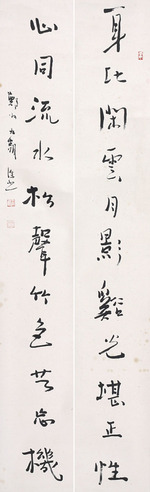 身比閑雲月影谿光堪正性
心同流水松聲竹色共忘機